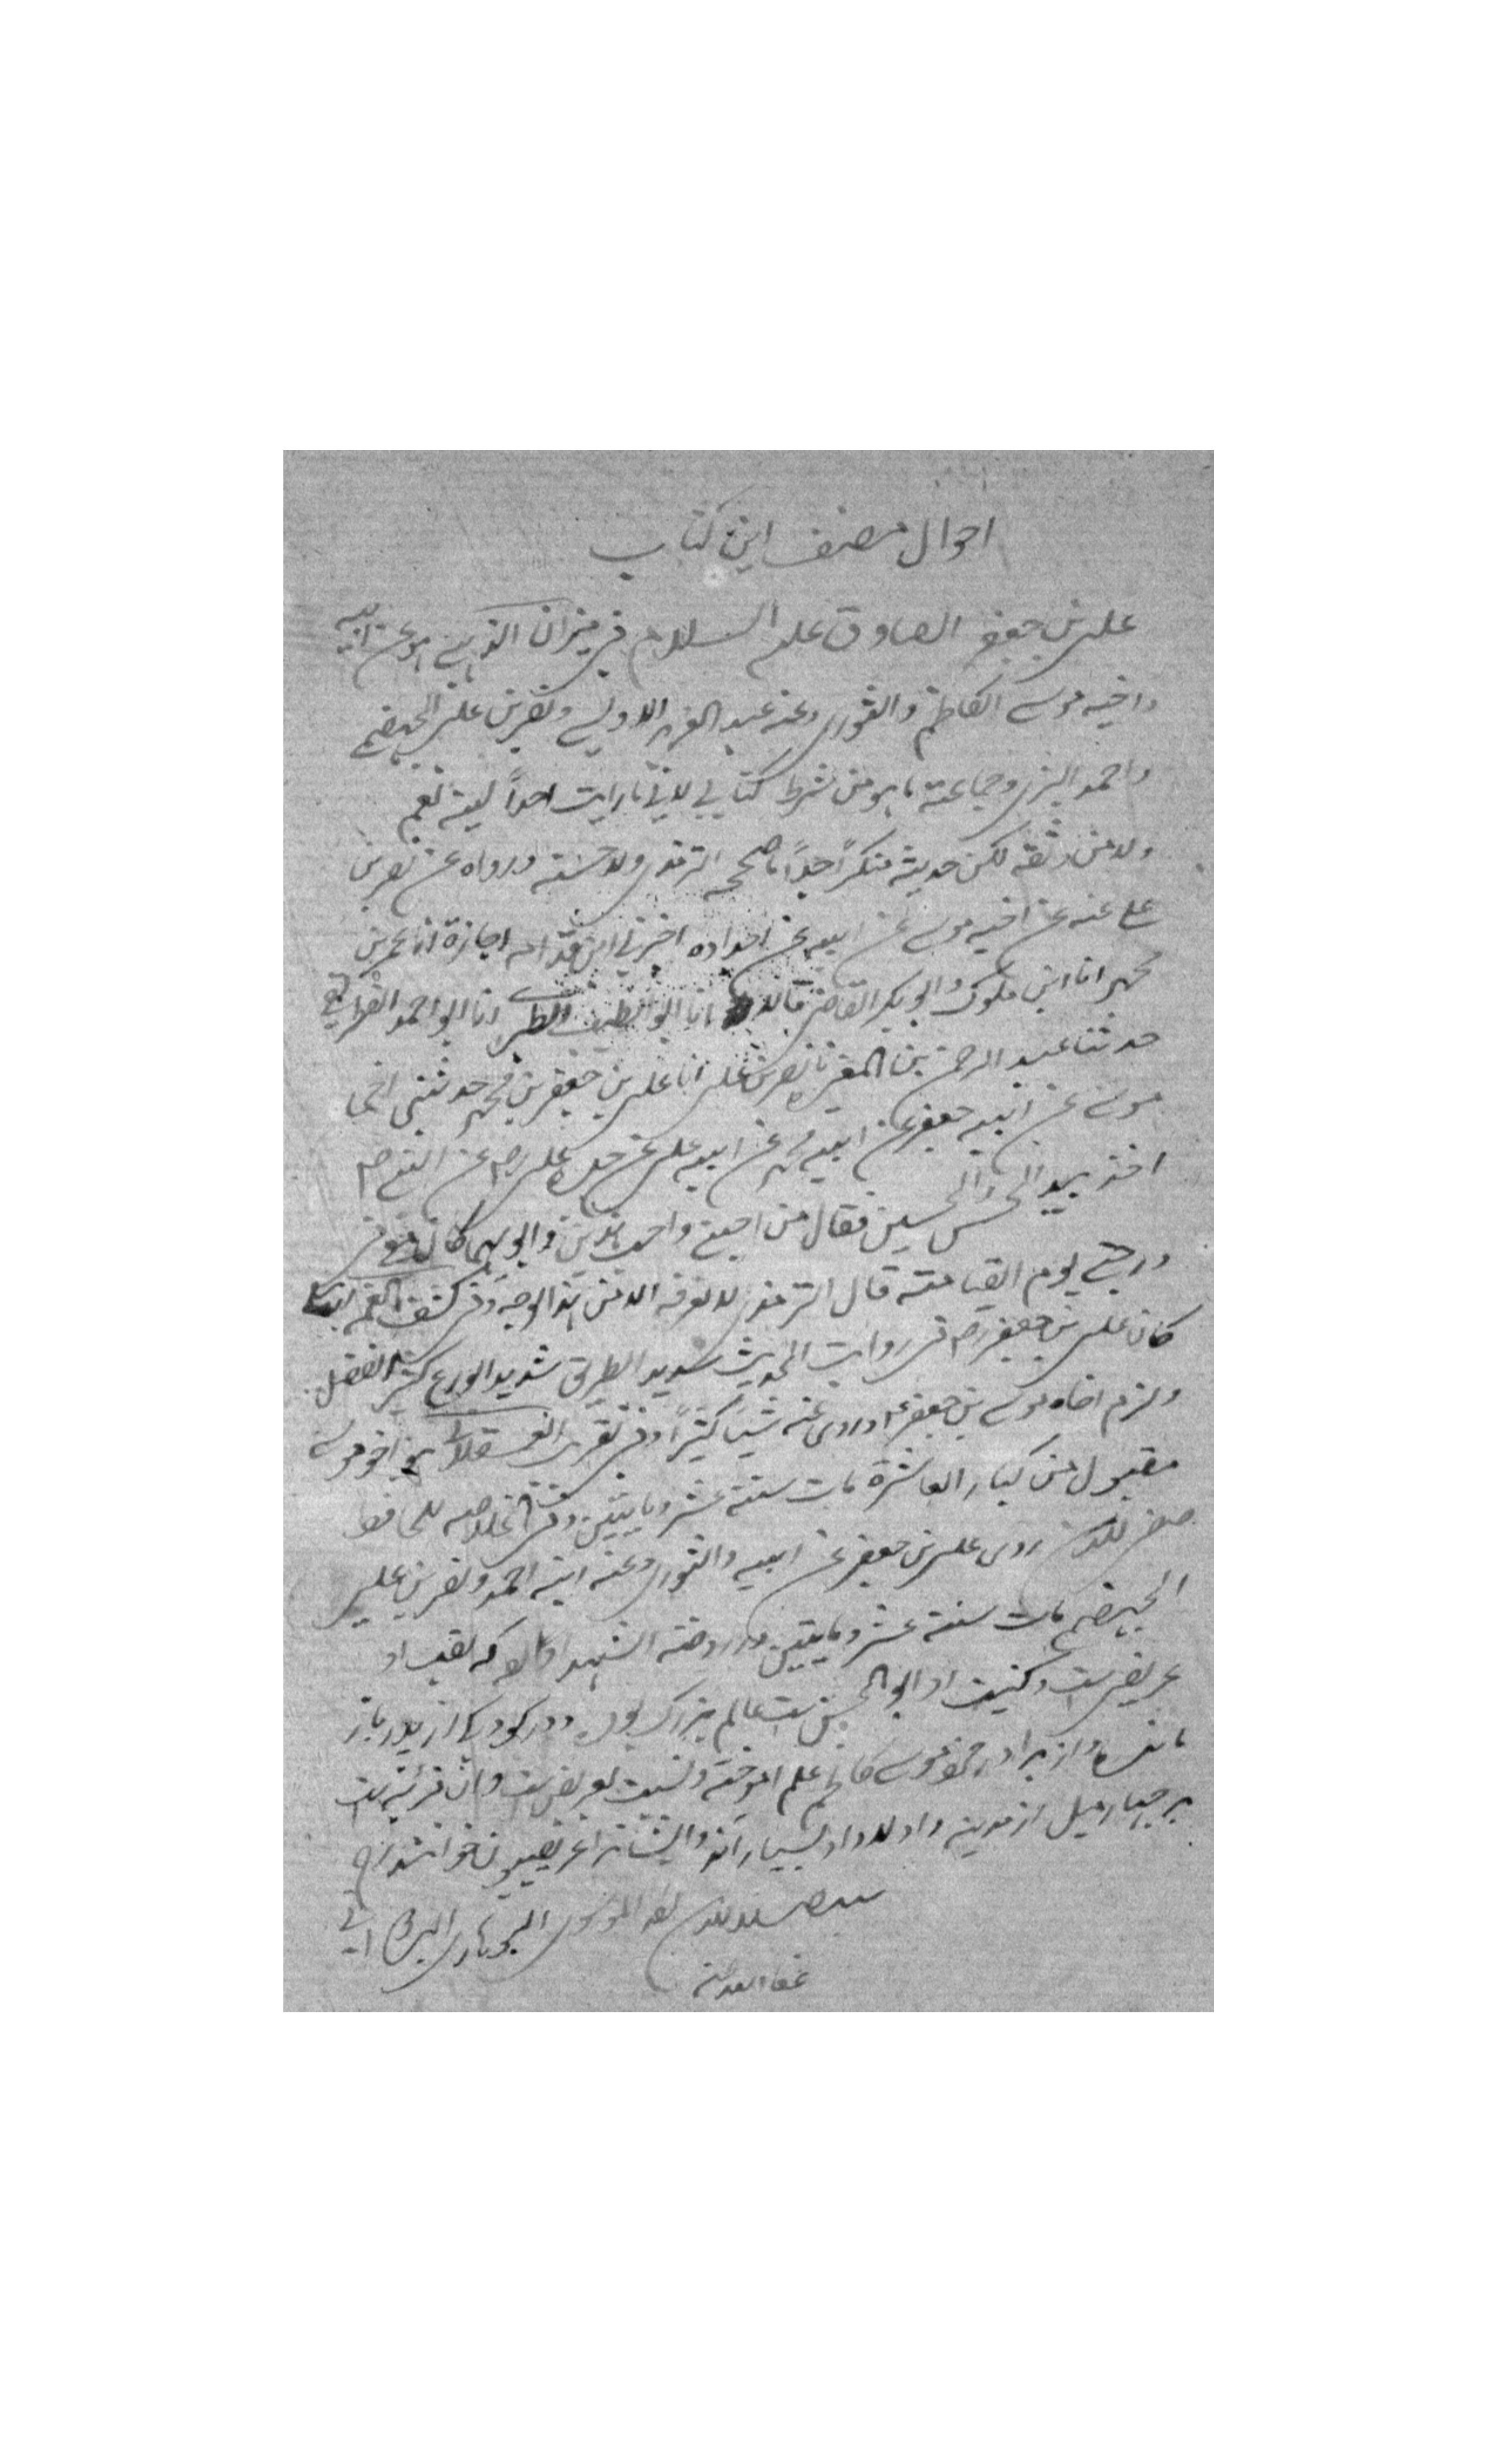 احوال مصنف این کتاب
علی بن جعفر الصادق علیه السلام فی میزان الذهبی هو عن ابیه
واخیه موسی الکاظم والثوری وعنه عبد العزیز الاویسی ونصر بن علی الجهضمی
واحمد البزی وجماعة ما هو من شرط کتابی لانی ما رایت احداً لینه نعم
ولا من وثقه لکن حدیثه منکر جداً ما صححه الترمذی ولا حسنه ورواه عن نصر بن
علی عنه عن اخیه موسی عن ابیه عن اجداده اخبرنی ابن قدامه اجازة انا عمر بن
محمد انا ابن ملوک وابو بکر القاضی قالا انا ابو الطیب الطبری انا ابو احمد الغطریفی
حدثنا عبد الرحمن بن المغیره نا نصر بن علی انا علی بن جعفر بن محمد حدثنی اخی
موسی عن ابیه جعفر عن ابیه محمد عن ابیه علی عن جده علی رض عن النبی ص
اخذ بید الحسن والحسین فقال من احبنی واحب هذین وابویهما کان معی فی
درجتی یوم القیامة قال الترمذی لا نعرفه الا من هذا الوجه وفی کشف الغمه
کان علی بن جعفر رض فی روایت الحدیث سدید الطریق شدید الورع کثیر الفضل
ولزم اخاه موسی بن جعفر ع وروی عنه شیئا کثیراً وفی تقریب العسقلانی هو اخو موسی
مقبول من کبار العاشرة مات سنة عشر ومایتین وفی الخلاصه للحافظ
صفی الدین روی علی بن جعفر عن ابیه والثوری وعنه ابنه احمد ونصر بن علی
الجهضمی مات سنة عشر ومایتین ودر روضة الشهدا که لقب او
عریضی ست وکنیت او ابو الحسن ست عالم بزرگ بود ودر کودکی از پدر باز
مانده واز برادر خود موسی کاظم علم اموخته ونسبت بعریض ست وان قریه ایست
بر چهار میل از مدینه واولاد او بسیار اند وایشانرا عریضیون خوانند اه
عفا الله عنه